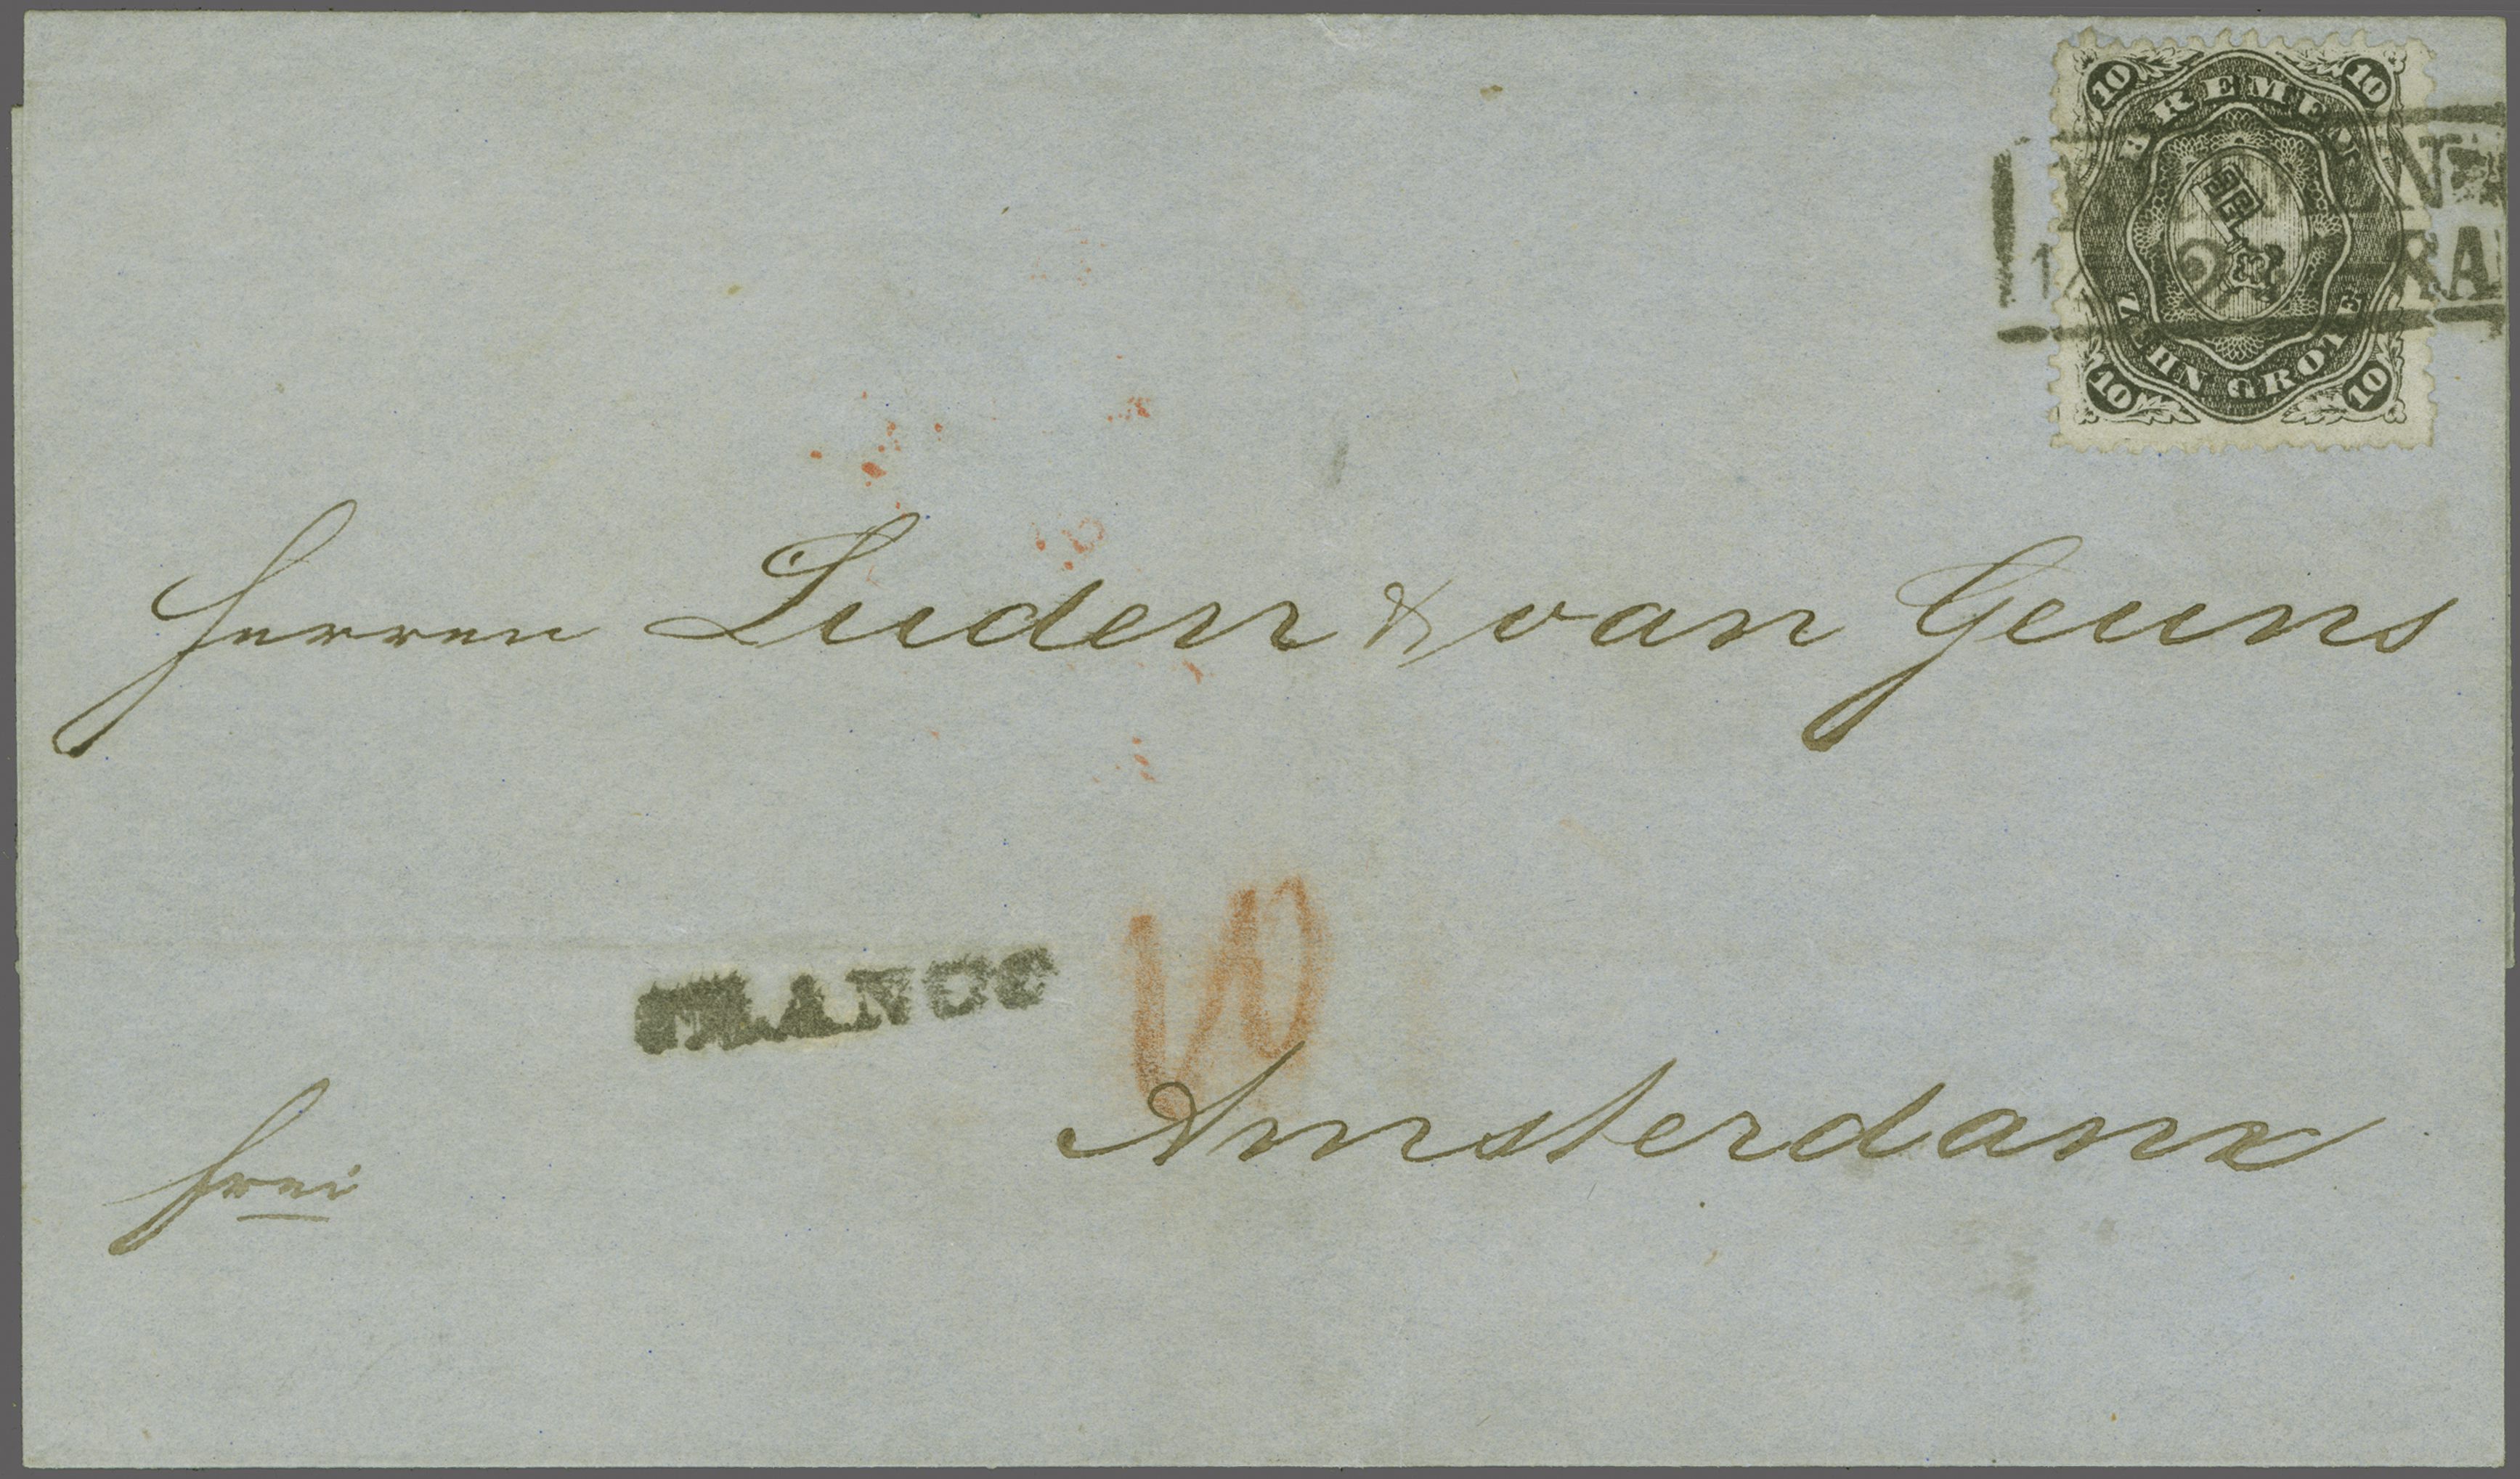 10 10
BREMEN
ZEHN GROTE
10 10
Herren Luden & van Geuns
FRANCO
10
Amsterdam
frei